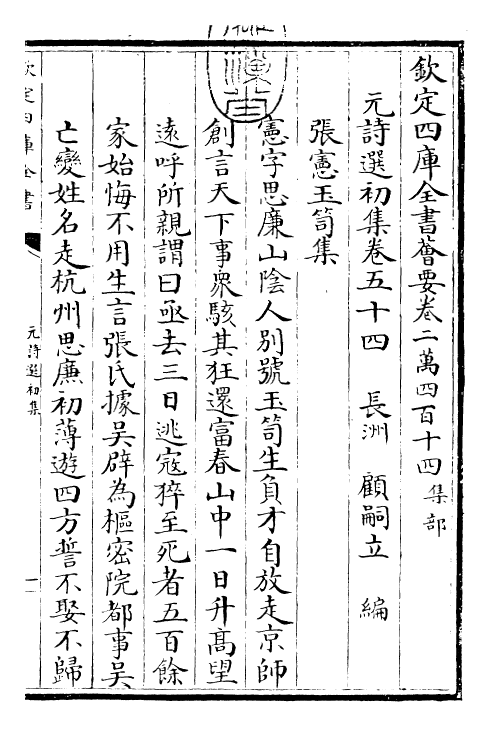 欽定四庫全書薈要卷二萬四百十四 集部
元詩選初集卷五十四 長洲 顧嗣立 編
張憲玉笥集
憲字思廉山陰人別號玉笥生負才自放走京師
創言天下事衆駭其狂還富春山中一日升髙望
遠呼所親謂曰亟去三日逃寇猝至死者五百餘
家始悔不用生言張氏據吳辟為樞密院都事吳
亡變姓名走杭州思廉初薄遊四方誓不娶不歸
欽定四庫全書
元詩選初集
一